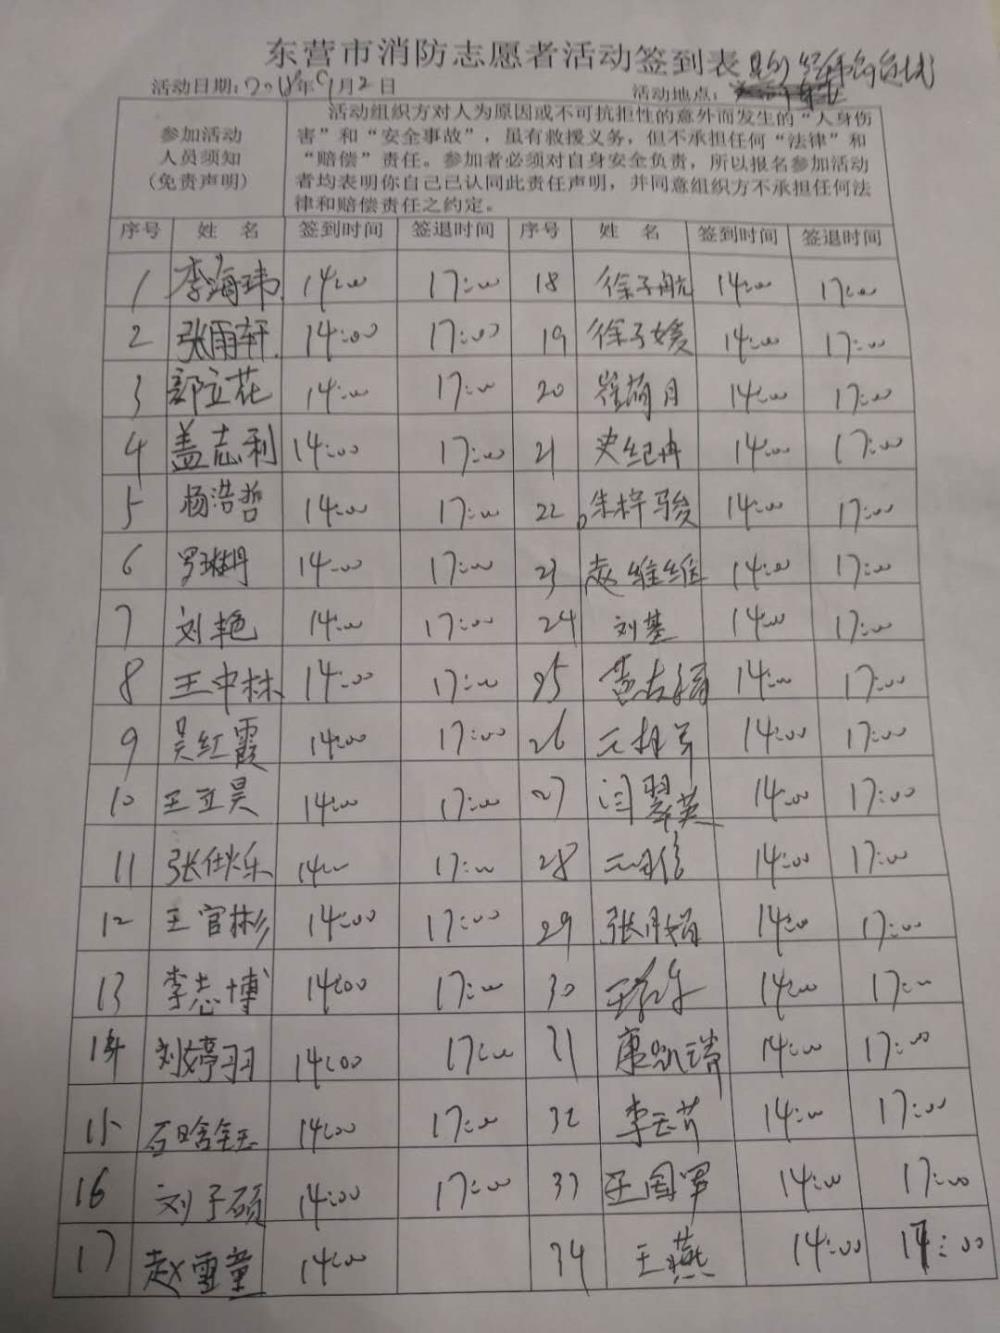 东营市消防志愿者活动签到表
活动日期:2018年9月2日 活动地点:
参加活动
人员须知
(免责声明)
活动组织方对人为原因或不可抗拒性的意外而发生的“人身伤
害”和“安全事故”,虽有救援义务,但不承担任何“法律”和
“赔偿”责任。参加者必须对自身安全负责,所以报名参加活动
者均表明你自己已认同此责任声明,并同意组织方不承担任何法
律和赔偿责任之约定。
序号 姓 名 签到时间 签退时间 序号 姓 名 签到时间 签退时间
1 李海玮 14:00 17:00 18 徐子航 14:00 17:00
2 张雨轩 14:00 17:00 19 徐子媛 14:00 17:00
3 郭立花 14:00 17:00 20 崔萌月 14:00 17:00
4 盖志利 14:00 17:00 21 史纪冉 14:00 17:00
5 杨浩哲 14:00 17:00 22 朱梓骏 14:00 17:00
6 罗琳丹 14:00 17:00 23 赵维维 14:00 17:00
7 刘艳 14:00 17:00 24 刘基 14:00 17:00
8 王中林 14:00 17:00 25 14:00 17:00
9 吴红霞 14:00 17:00 26 14:00 17:00
10 王立昊 14:00 17:00 27 闫翠英 14:00 17:00
11 张仕乐 14:00 17:00 28 14:00 17:00
12 王官彬 14:00 17:00 29 张月娟 14:00 17:00
13 李志博 14:00 17:00 30 14:00 17:00
14 刘婷羽 14:00 17:00 31 康凯靖 14:00 17:00
15 石晗钰 14:00 17:00 32 李云芹 14:00 17:00
16 刘子硕 14:00 17:00 33 王国军 14:00 17:00
17 赵雪童 14:00 34 王燕 14:00 17:00